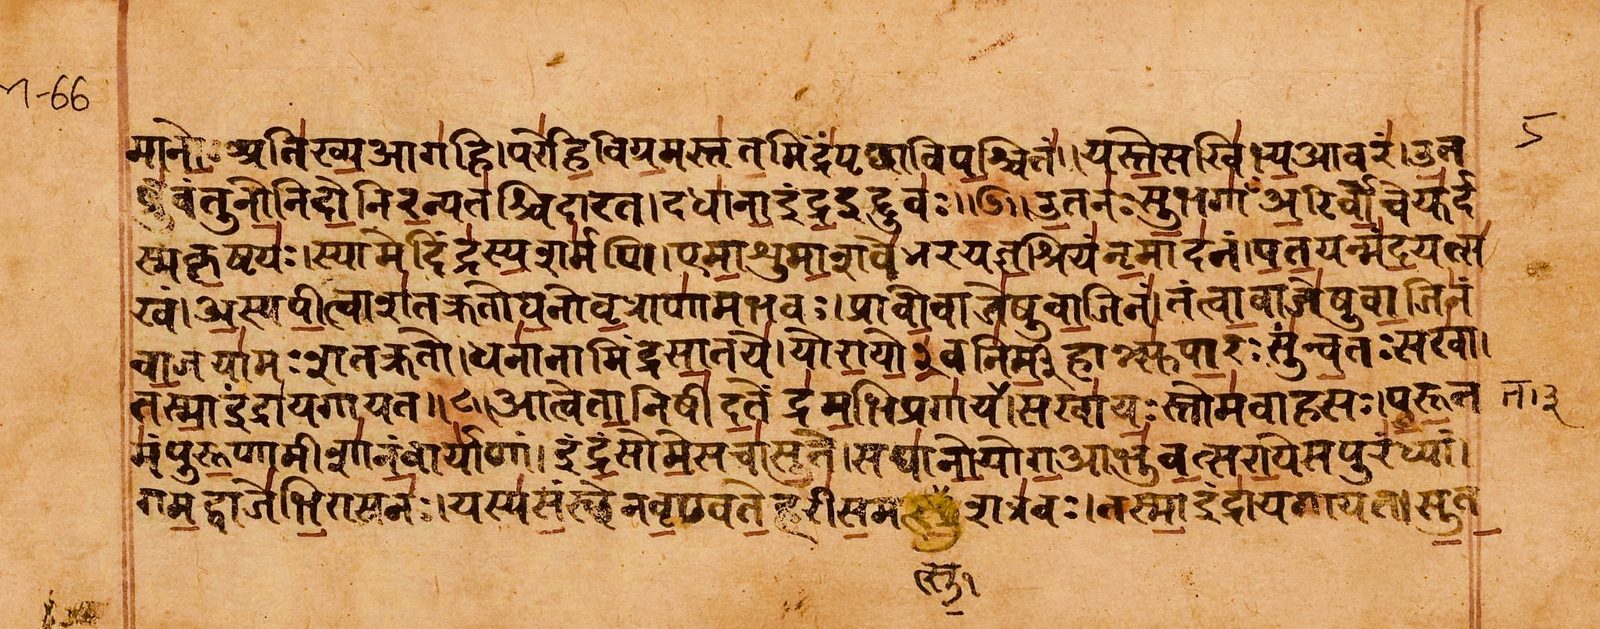 M-66
5
मानो अतिख्य आगहि। परेहि विग्रमस्तृतमिंद्रं पृछा विपश्चितं। यस्ते सखिभ्य आ वरं। उत
ब्रुवंतु नो निदो निरन्यतश्चिदारत। दधाना इंद्र इद्दुवः॥७॥ उत नः सुभगाँ अरिर्वोचेयुर्द
स्म कृष्टयः। स्यामेदिंद्रस्य शर्मणि। एमाशुमाशवे भर यज्ञश्रियं नृमादनं। पतयन्मंदयत्स
खं। अस्य पीत्वा शतक्रतो घनो वृत्राणामभवः। प्रावो वाजेषु वाजिनं। तं त्वा वाजेषु वाजिनं
वाजयामः शतक्रतो। धनानामिंद्र सातये। यो रायो३वनिर्म३हान्त्सुपारः सुन्वतः सखा।
तस्मा इंद्राय गायत॥८॥ आत्वेता निषीदतेंद्रमभि प्रगायत। सखायः स्तोमवाहसः। पुरूत
त्रा३
मं पुरूणामीशानं वार्याणां। इंद्रं सोमे सचा सुते। स घा नो योग आ भुवत्स राये स पुरंध्यां।
गमद्वाजेभिरा स नः। यस्य संस्थे न वृण्वते हरी समत्सु शत्रवः। तस्मा इंद्राय गायत। सुत
त्सु१